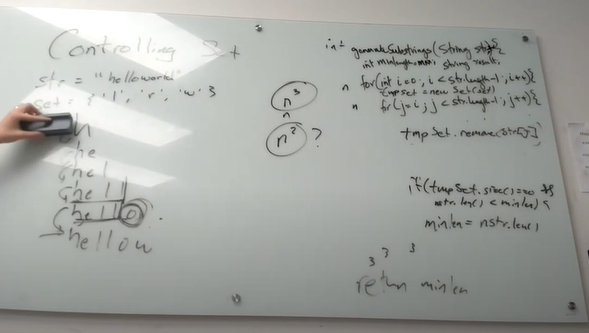 Controlling
str = "helloworld"
set = { 'l', 'r', 'w' }
h
he
hel
hell
hello
hellow
n³
n
n² ?
int generateSubstrings(String str){
int minlength=
String result;
n for(int i=0; i < str.length-1; i++){
tmpset = new Set(
n for(j=i; j < str.length-1; j++){
tmpSet.remove(str[j])
if(tmpSet.size()==0 &&
nstr.len() < minlen) {
minlen = nstr.len()
}
}
}
return minlen